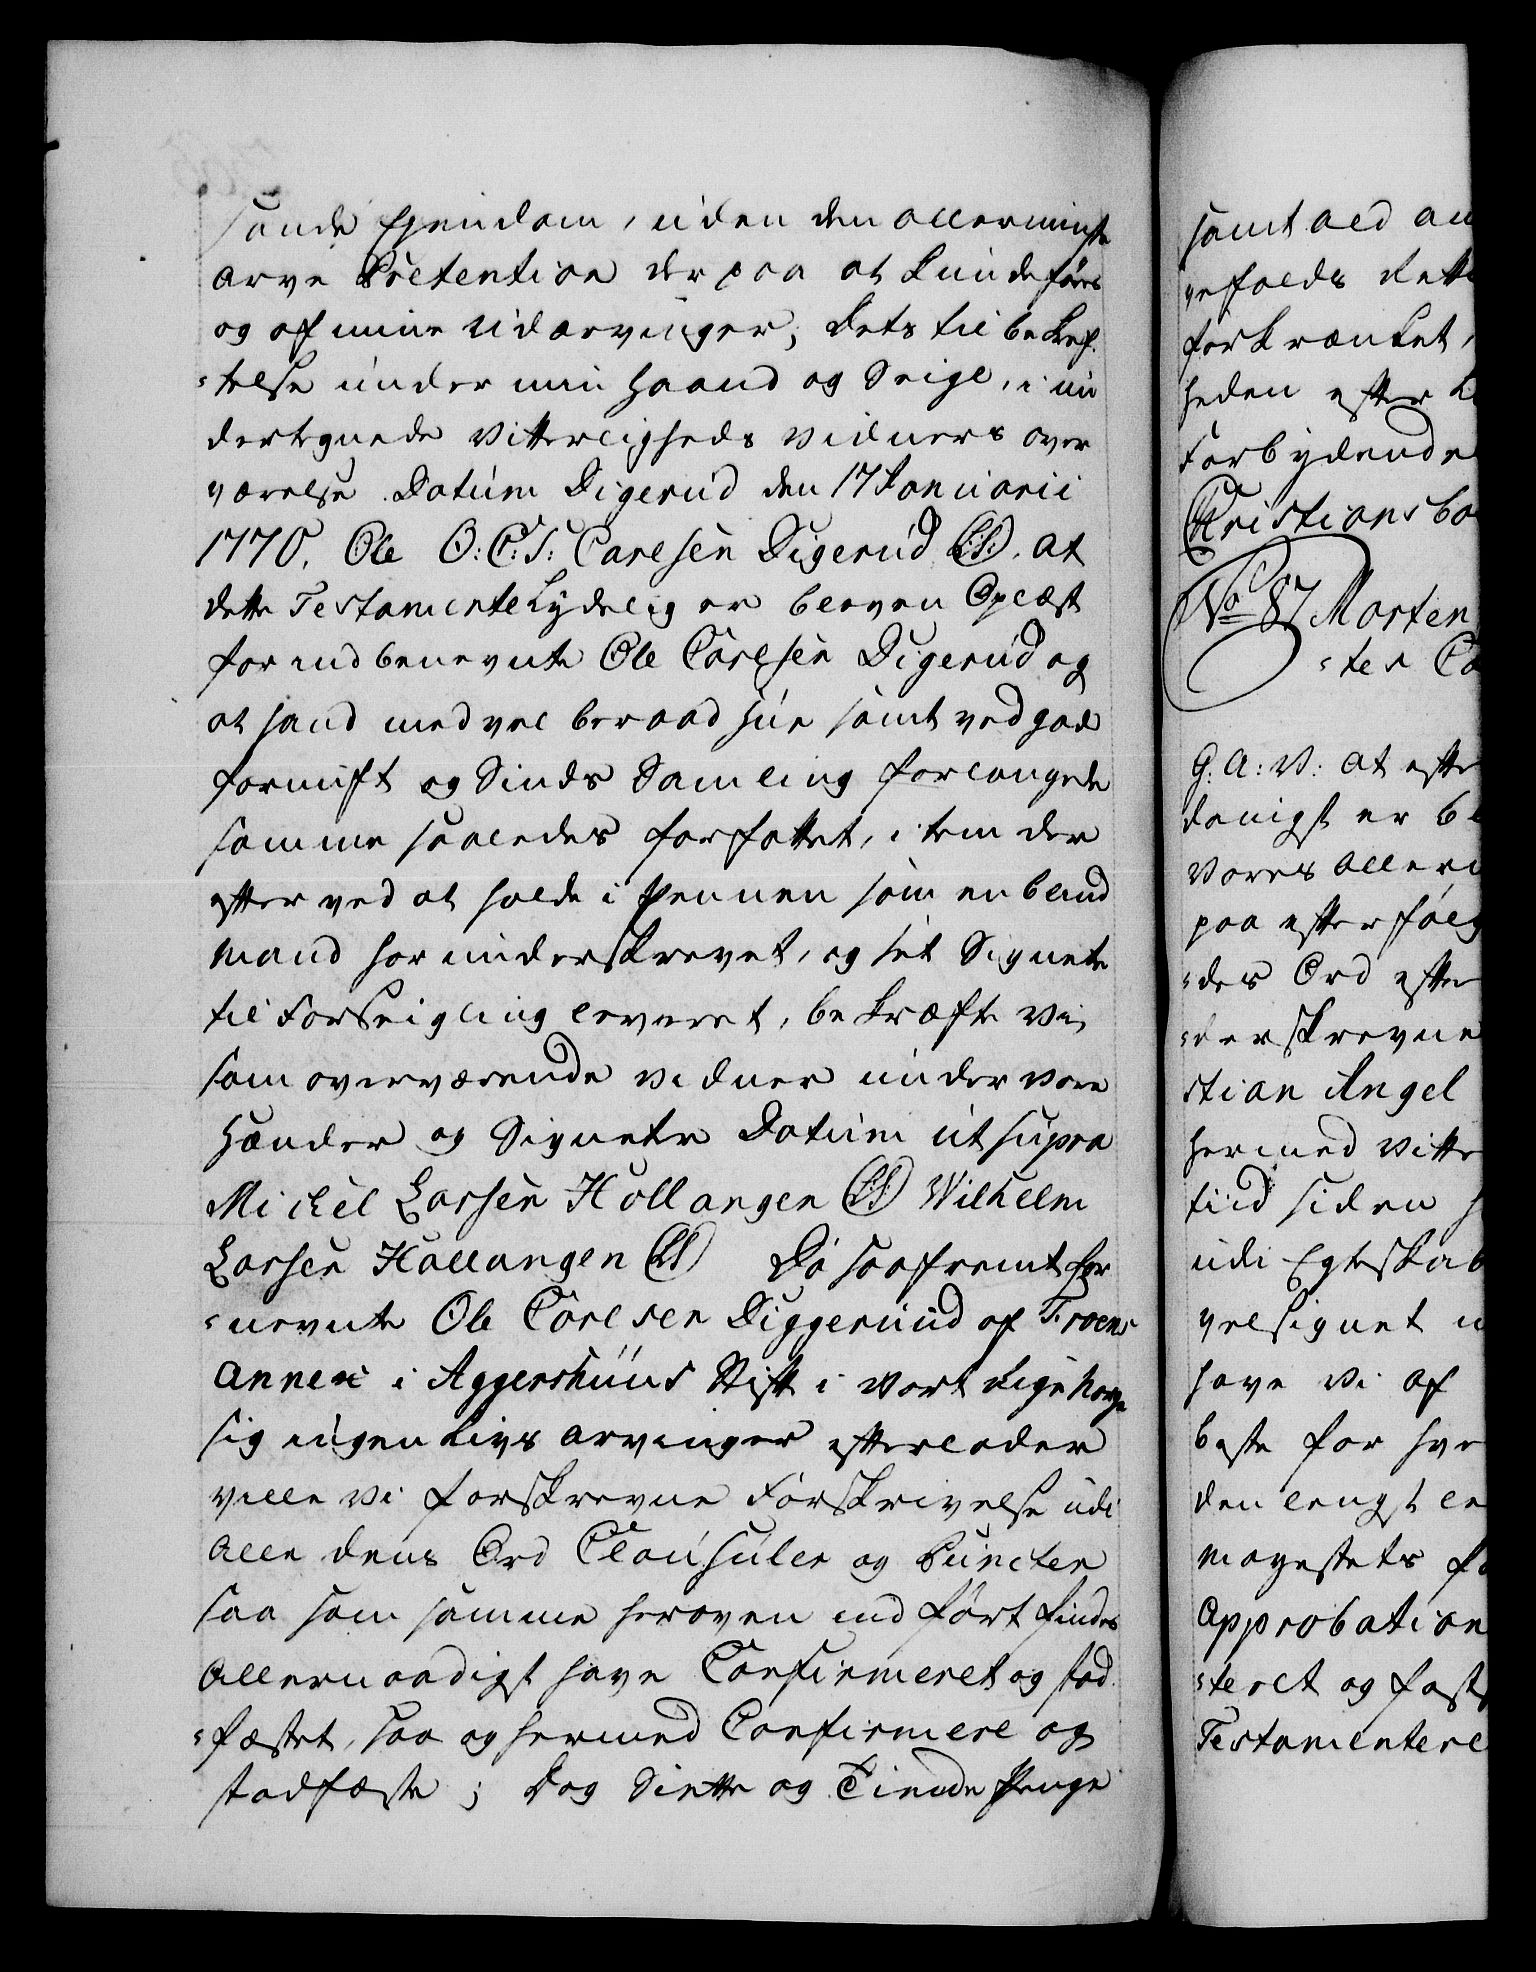 sande Ejendom, uden den allerminste
arve Prætention der paa at kunde føres
og af mine Udarvinger; Dets til bekref-
=telse under min Haand og Seigl, i un
dertegnede Vitterligheds Vidners over
værelse. Datum Digerud den 17 Januarii
1770. Ole O: C: S: Carlsen Digerud (LS). at
dette Testamente Lydelig er bleven Oplæst
for indbenevnte Ole Carlsen Digerud og
at hand med vel beraad Hue samt ved god
fornuft og Sinds Samling forlangede
samme saaledes forfattet, item der
efter ved at holde i Pennen som en blind
Mand har underskrevet, og sit Signete
til Forseigling leveret, bekræfte Vi
som overværende Vidner under vore
Hænder og Signeter Datum ut supra
Michel Larsen Hollangen (LS) Wilhelm
Larsen Hollangen (LS) Da saafremt for
=nevnte Ole Carlsen Diggeruud af Froens
Annex i Aggershuus Stift i Vort Rige Norge
sig ingen Livs Arvinger efterlader
ville Vi forskrevne Forskrivelse udi
Alle dens Ord Clausuler og Puncter
saa som samme heroven indført findes
Allernaadigst have Confirmeret og stad-
=fæstet, saa og hermed Confirmere og
stadfæste; Dog Siette og Tiende Penge
samt ald an
gefalds Rette
forkrænket,
heden efter L
Forbydende
Christiansbo
No 87 Morten
=ter Ca
G: A: V: at efte
danigst er b
Vores Allern
paa efterfølg
=des Ord efter
=derskrevne
stian Angel
hermed Vitte
tiid siden h
udi Egteskab
velsignet
have Vi af
beste for hve
den lengst le
Mayestets f
Approbation
=teret og fast
Testamentere